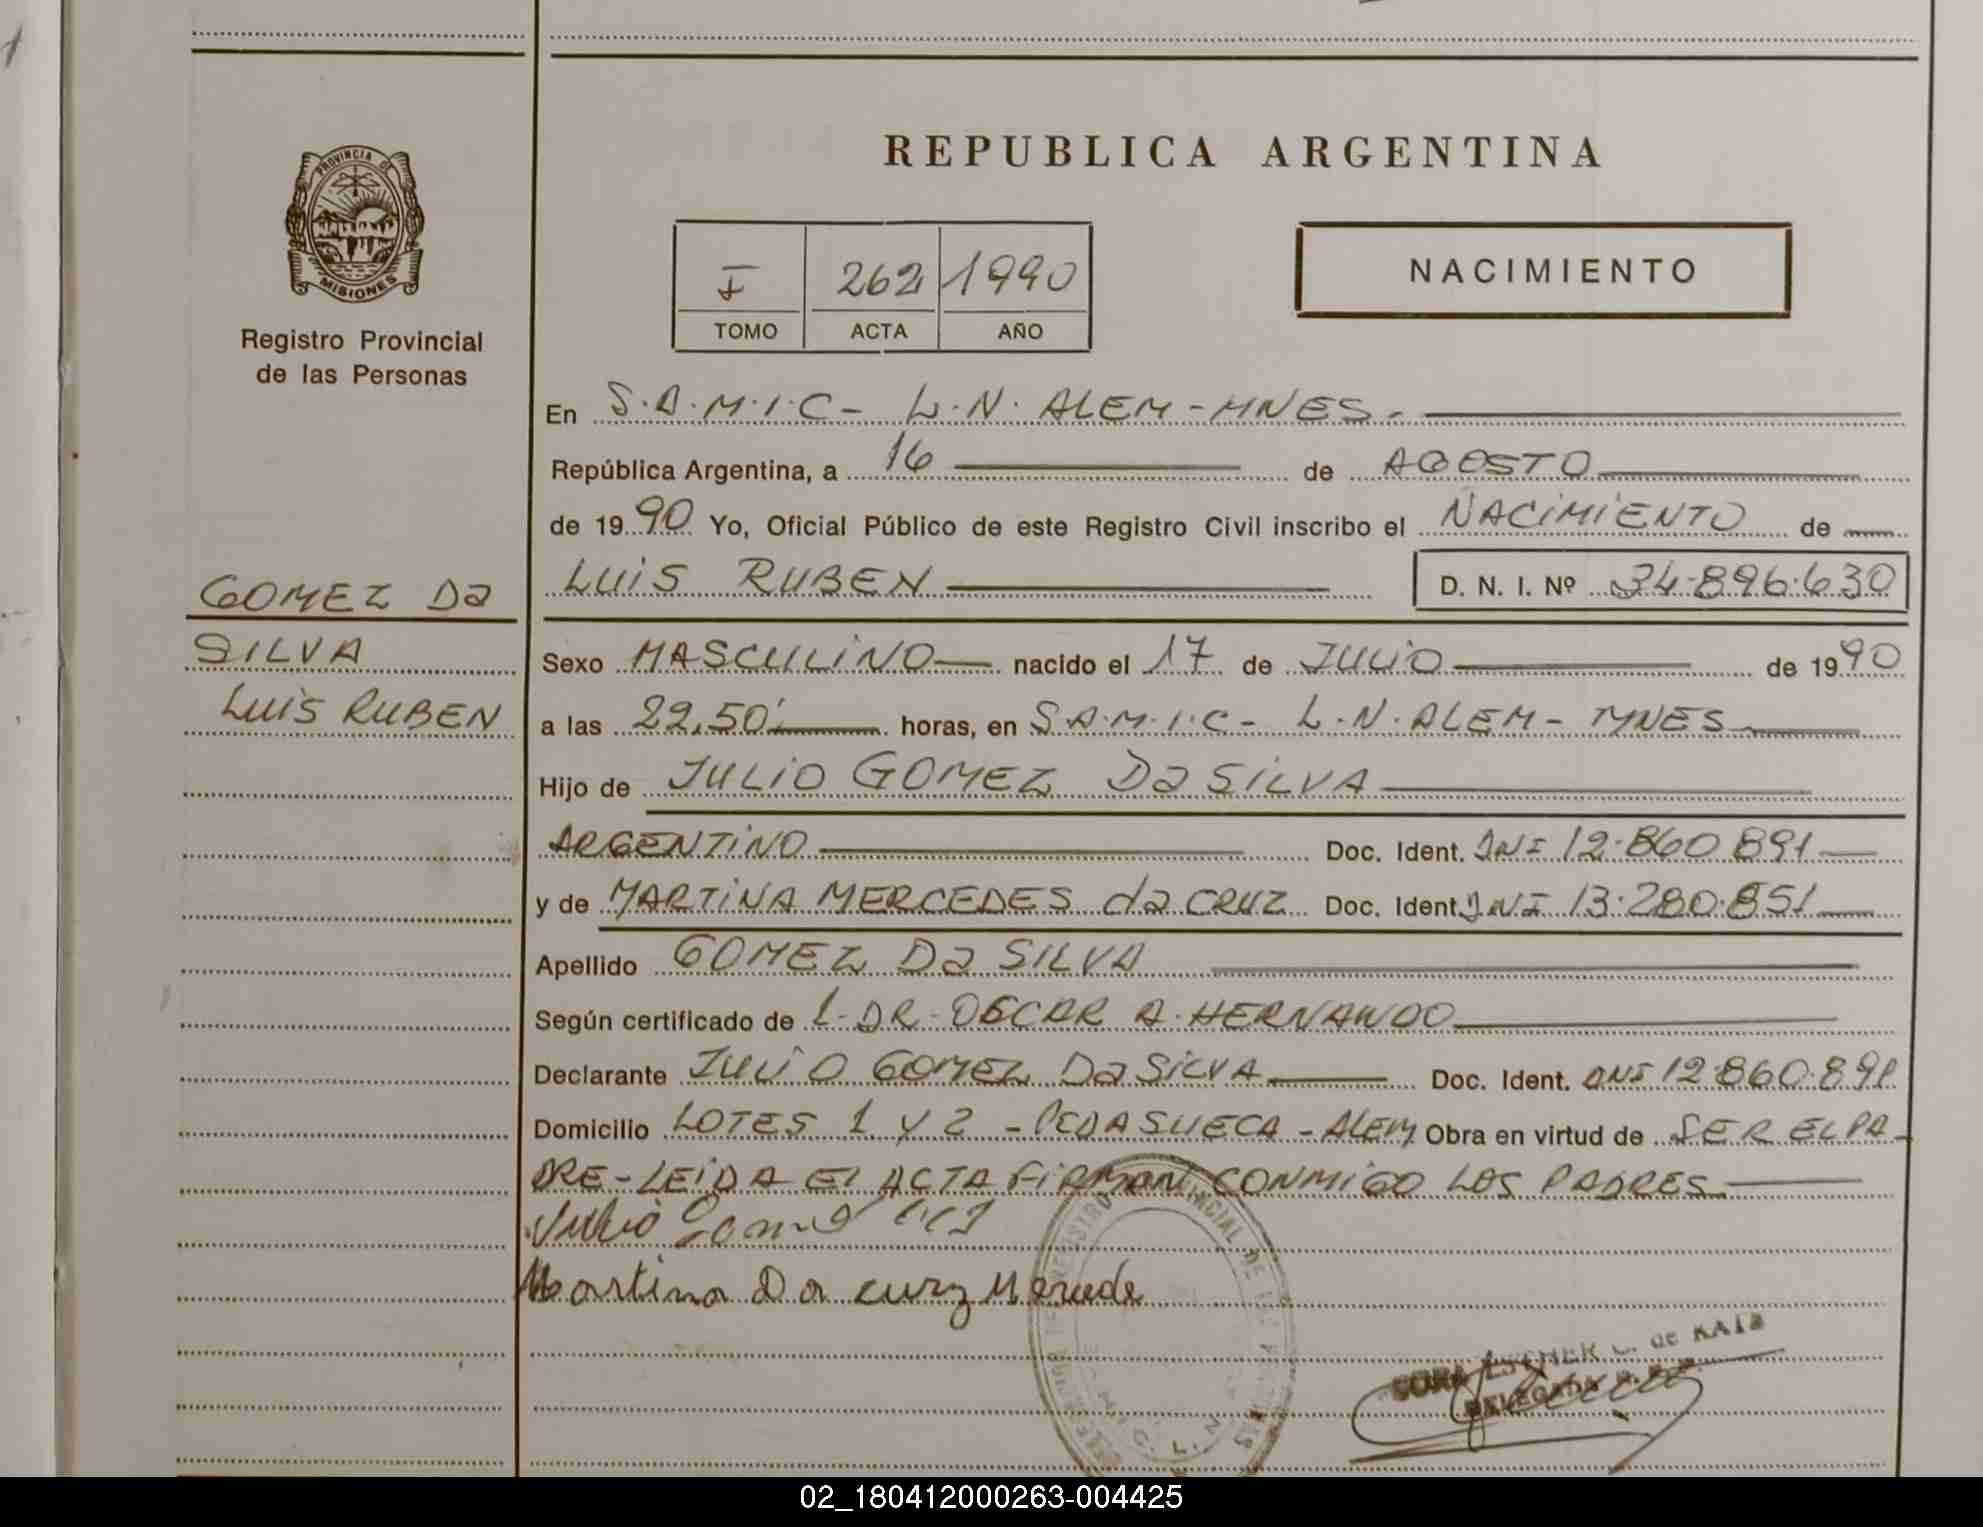 REPUBLICA ARGENTINA
PROVINCIA DE
MISIONES
Registro Provincial
de las Personas
I 262 1990
TOMO ACTA AÑO
NACIMIENTO
En S.A.M.I.C- L.N. ALEM-MNES.
República Argentina, a 16 de AGOSTO
de 1990 Yo, Oficial Público de este Registro Civil inscribo el NACIMIENTO de
LUIS RUBEN D. N. I. Nº 34.896.630
GOMEZ Da
SILVA
LUIS RUBEN
Sexo MASCULINO nacido el 17 de JULIO de 1990
a las 22,50' horas, en S.A.M.I.C- L.N. ALEM- MNES
Hijo de JULIO GOMEZ Da SILVA
ARGENTINO Doc. Ident. DNI 12.860.891
y de MARTINA MERCEDES da CRUZ Doc. Ident. DNI 13.280.851
Apellido GOMEZ Da SILVA
Según certificado de L- DR- OSCAR A. HERNANDO
Declarante JULIO GOMEZ Da SILVA Doc. Ident. DNI 12.860.891
Domicilio LOTES 1 Y 2 - PCDA SUECA - ALEM Obra en virtud de SER EL PA-
DRE-LEIDA EL ACTA FIRMAN CONMIGO LOS PADRES
Julio
Martina Da curz Mercede
ESTHER C. de KATZ
DELEGADA
02_180412000263-004425